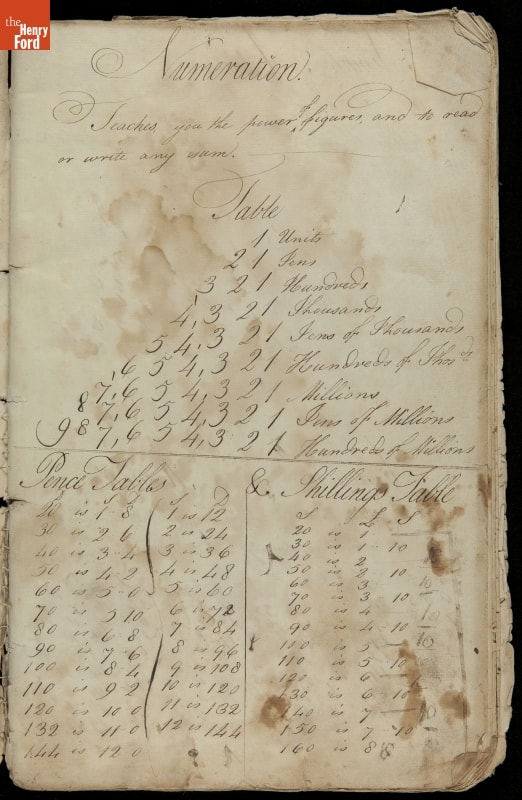 the
Henry
Ford
Numeration.
Teaches you the power of figures, and to read
or write any sum.
Table
1 Units
2 1 Tens
3 2 1 Hundreds
4,3 2 1 Thousands
5 4,3 2 1 Tens of Thousands
,6 5 4,3 2 1 Hundreds of Thos.ds
7,6 5 4,3 2 1 Millions
8 7,6 5 4,3 2 1 Tens of Millions
9 8 7,6 5 4,3 2 1 Hundreds of Millions
Pence Tables
S D
20 is 1 8
30 is 2 6
40 is 3-4
50 is 4 2
60 is 5-0
70 is 5 10
80 is 6 8
90 is 7-6
100 is 8 4
110 is 9-2
120 is 10 0
132 is 11 0
144 is 12 0
S D
1 is 12
2 is 24
3 is 36
4 is 48
5 is 60
6 is 72
7 is 84
8 is 96
9 is 108
10 is 120
11 is 132
12 is 144
& Shillings Table
S L S
20 is 1
30 is 1-10
40 is 2
50 is 2 10
60 is 3
70 is 3 10
80 is 4
90 is 4-10
100 is 5
110 is 5 10
120 is 6
130 is 6 10
140 is 7
150 is 7 10
160 is 8